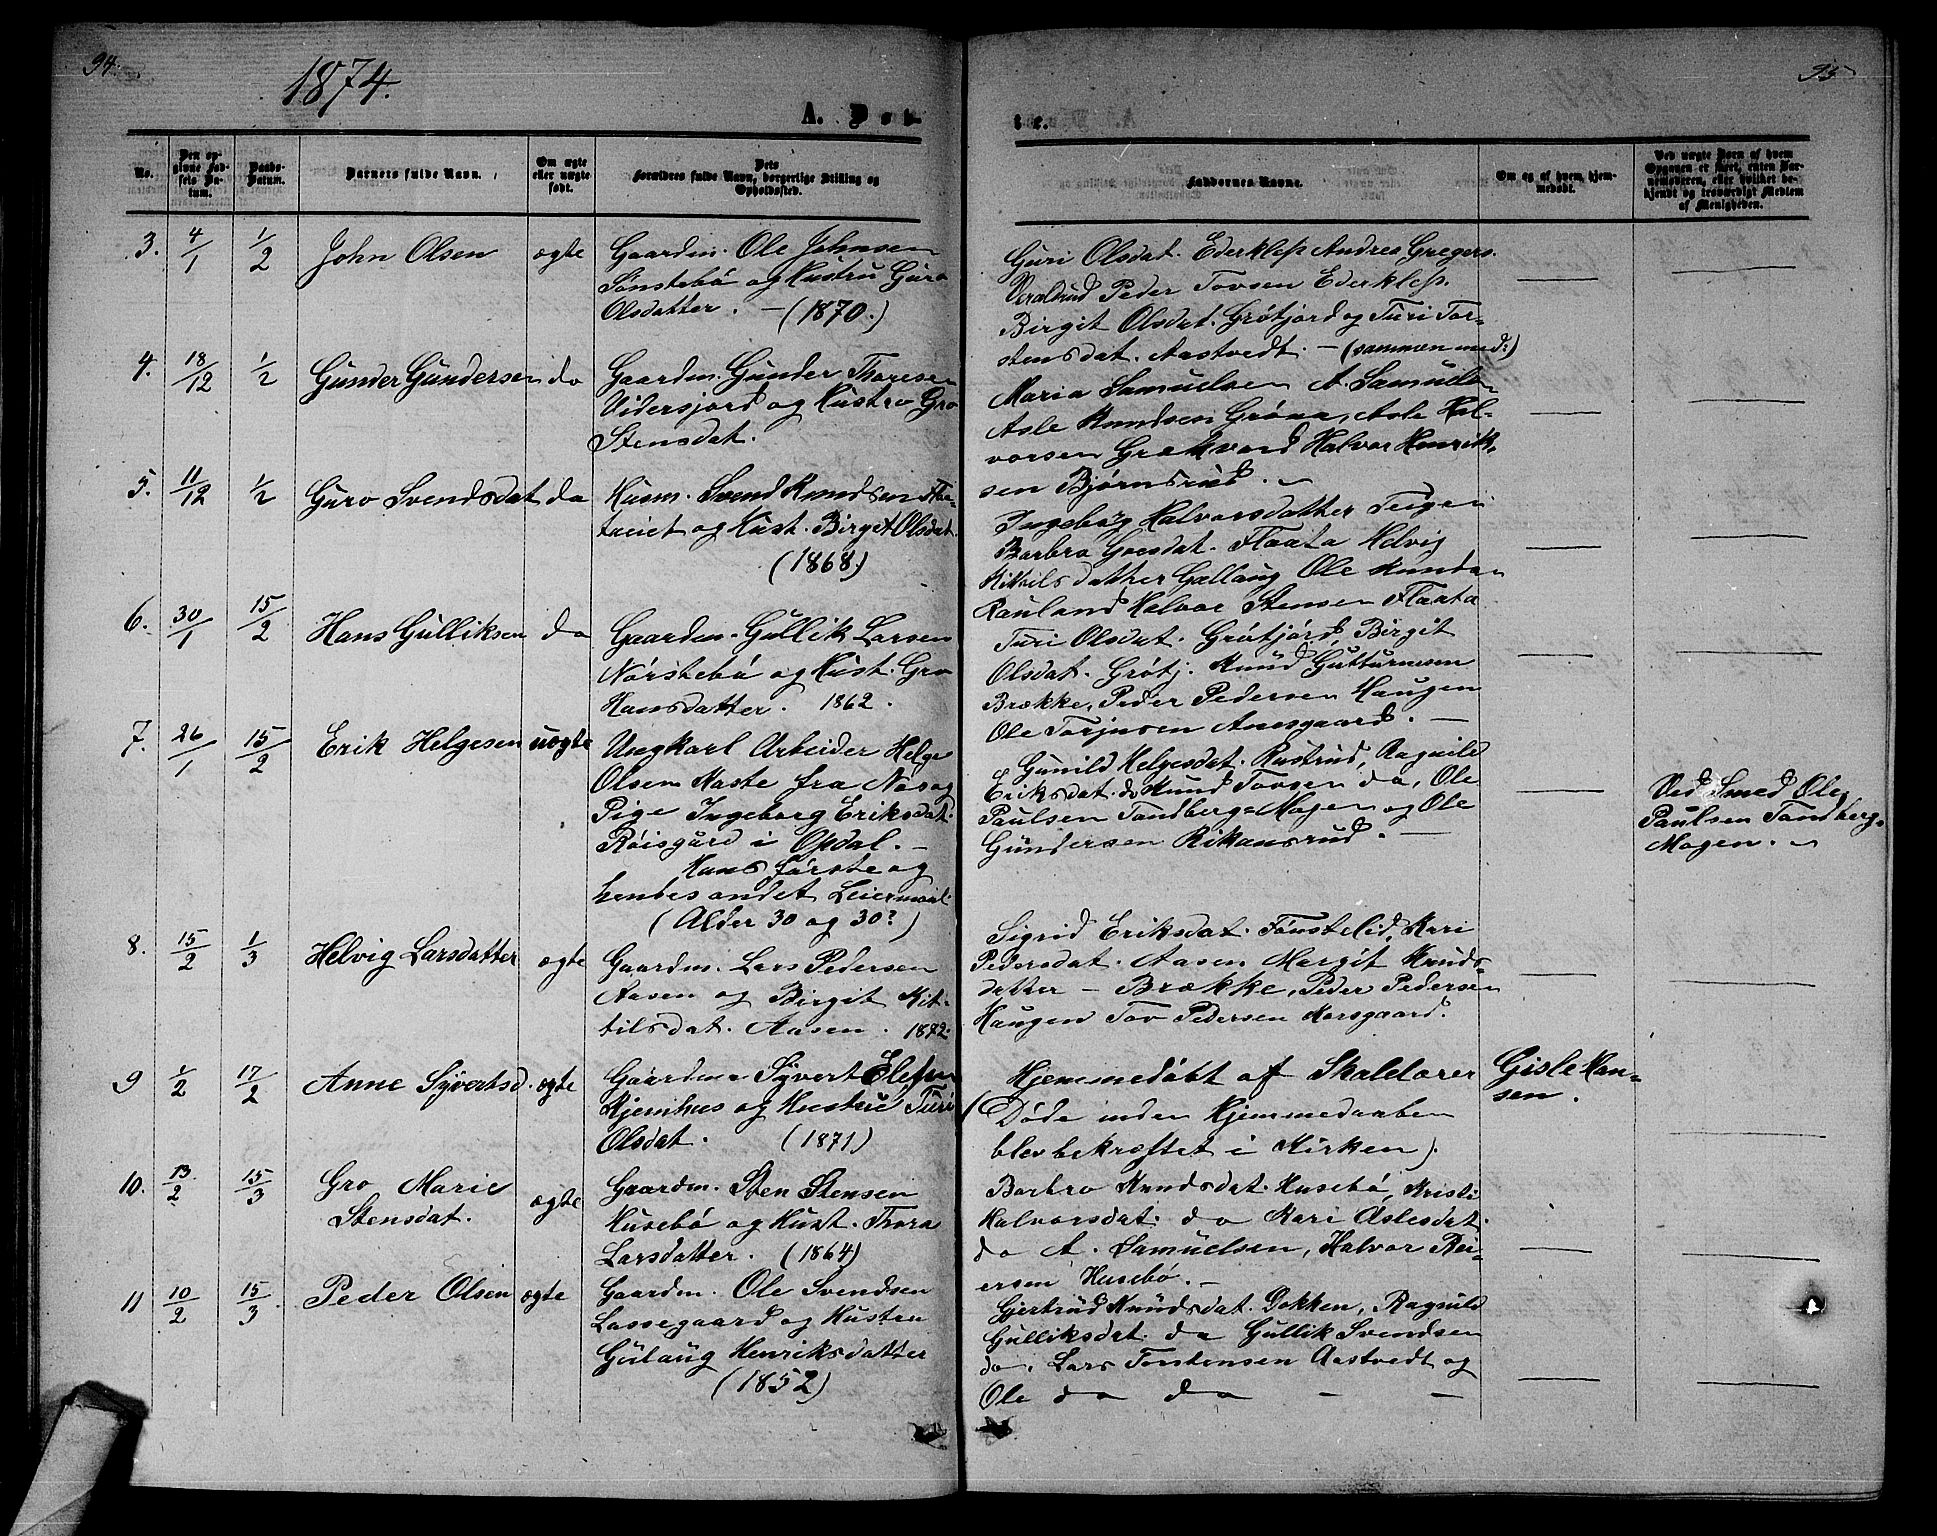 94.
1874.
A. Døb-
No.
Den op-
givne Fød-
sels Da-
tum.
Daabs-
Datum.
Barnets fulde Navn.
Om ægte
eller uægte
født.
Dets
Forældres fulde Navn, borgerlige Stilling og
Opholdssted.
3. 4/1 1/2 John Olsen ægte
Gaardm. Ole Johnsen
Sønstebø og Hustru Guro
Olsdatter. – (1870.)
4. 18/12 1/2 Gunder Gundersen do
Gaardm. Gunder Thoresen
Vidersjord og Hustro Gro
Stensdat.
5. 11/12 1/2 Guro Svendsdat do
Husm. Svend Knudsen Flaa-
teiet og Hust. Birget Olsdat.
(1868.)
6. 30/1 15/2 Hans Gulliksen do
Gaardm. Gullik Larsen
Nørstebø og Hust. Gro
Hansdatter. 1862.
7. 26/1 15/2 Erik Helgesen uægte
Ungkarl Arbeider Helge
Olsen Naste fra Næs og
Pige Ingeborg Eriksdat.
Røisgård i Opdal. –
Hans første og
hendes andet Leiermaal.
(Alder 30 og 30?)
8. 15/2 1/3 Helvig Larsdatter ægte
Gaardm. Lars Pedersen
Aasen og Birgit Kit-
tilsdat. Aasen. 1872.
9 1/2 17/2 Anne Syvertsd. ægte
Gaardm. Syvert Elefsen
Hjemhus og Hustrue Turi
Olsdat. (1871)
10. 13/2 15/3 Gro Marie
Stensdat. ægte
Gaardm. Sten Stensen
Husebø og Hust. Thora
Larsdatter. (1864)
11 10/2 15/3 Peder Olsen ægte
Gaardm. Ole Svendsen
Lassegaard og Hustru
Gulaug Henriksdatter
(1852)
95
te.
Faddernes Navne.
Om og af hvem hjem-
medøbt.
Ved uægte Børn af hvem
Opgaven er skeet, enten Bar-
nemoderen, eller hvilket be-
kjendt og troværdigt Medlem
af Menigheden.
Guri Olsdat. Ederklep Andres Gregers.
Veralsrud Peder Tovsen Ederklep.
Birgit Olsdat. Grøtjord og Turi Tor-
stensdat. Aastvedt. – (sammen med:)
Maria Samuelsen A. Samuelsen
Asle Knudsen Gróna, Asle Hal-
vorsen Halvor Henrik-
sen Bjørnsrud.
Ingeborg Halvorsdatter Teigen
Barbro Goesdat. Flaata Helvig
Kittilsdatter Gællaug Ole Knudsen
Rauland Halvor Stensen Flaata
Turi Olsdat. Grøtjord, Birgit
Olsdat. Grøtj. Knud Gutturmsen
Brække, Peder Pedersen Haugen
Ole Torjusen Aasgaard. –
Gunild Helgesdat. Rustrud, Ragnild
Eriksdat. do Knud Tovsen do, Ole
Paulsen Tandberg-Mogen og Ole
Gundersen Rikansrud. –
Ved Smed Ole
Paulsen Tandberg-
Mogen.
Sigrid Eriksdat. Fønstelid, Kari
Pedersdat. Aasen Margit Knuds-
datter – Brække, Peder Pedersen
Haugen Tov Pedersen Korsgaard.
Hjemmedøbt af Skolelærer
(Døde inden Hjemmedaaben
blev bekræftet i Kirken).
Gisle Han-
sen.
Barbro Knudsdat. Husebø, Kristi
Halvorsdat. do Kari Aslesdat.
do A. Samuelsen, Halvor Rei-
ersen Husebø. –
Gjertrud Knudsdat. Dokken, Ragnild
Gulliksdat. do Gullik Svendsen
do. Lars Torstensen Aastvedt og
Ole do do – –